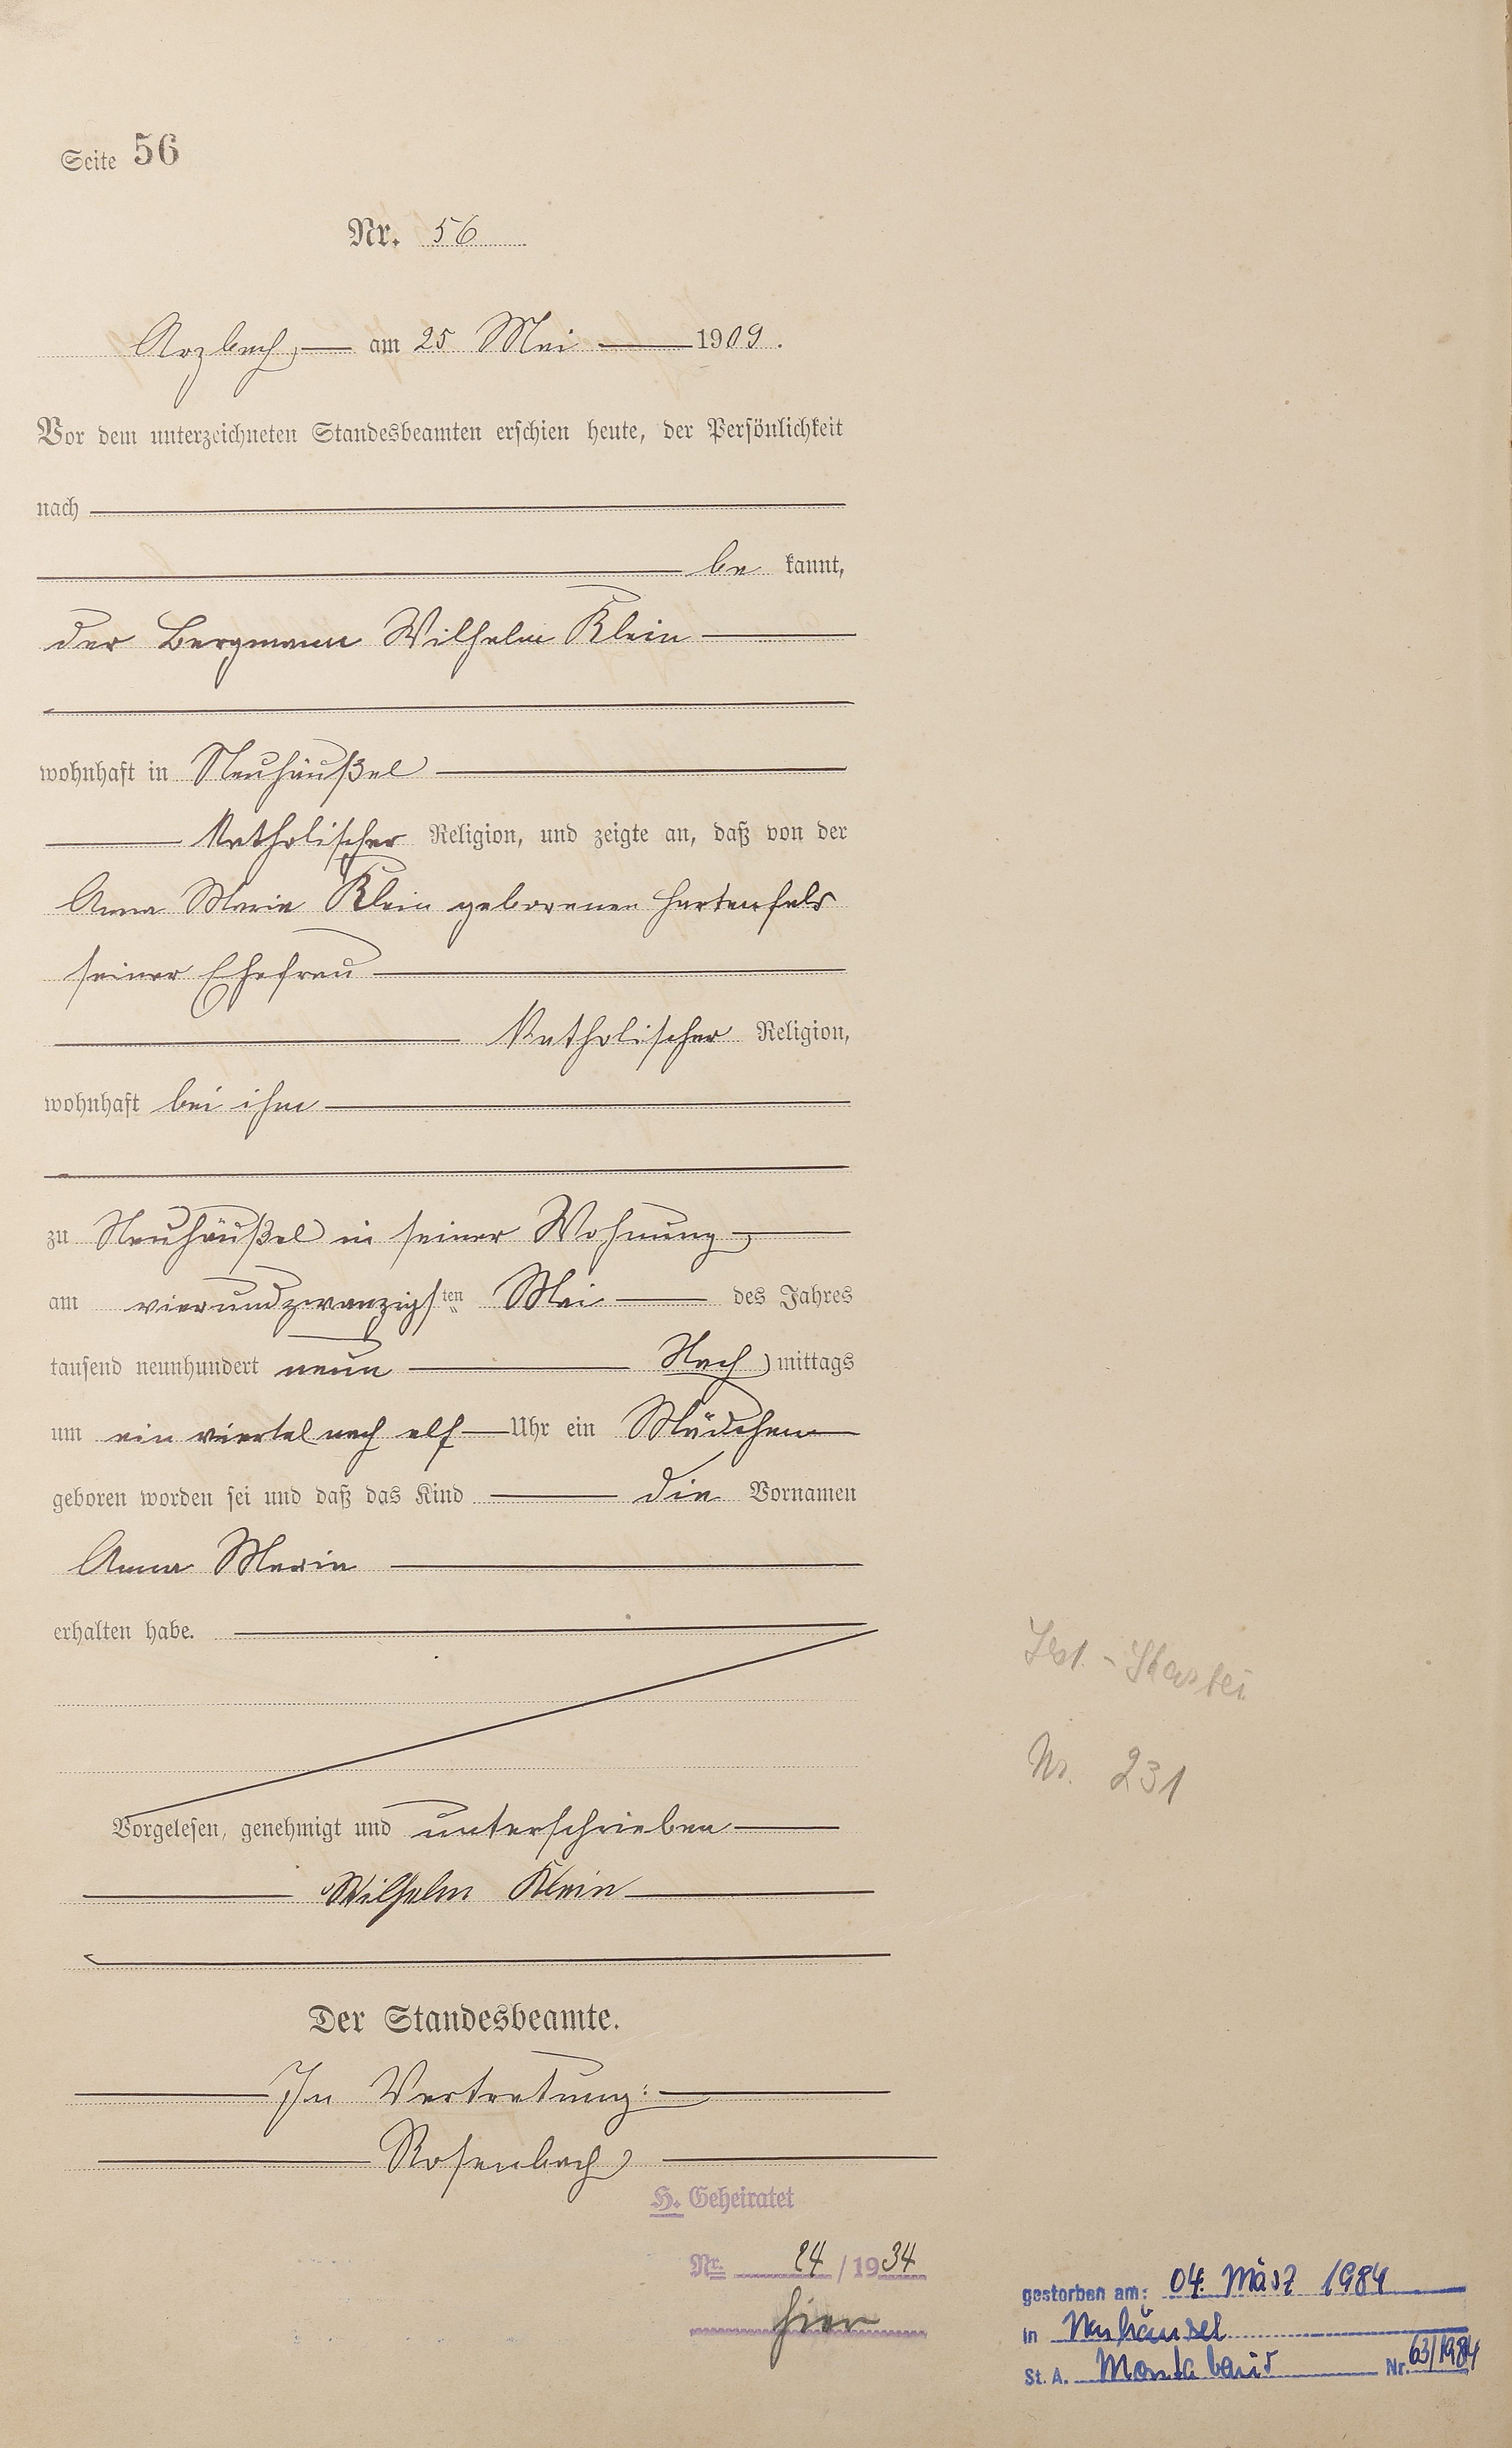 Seite 56
Nr. 56
Arzbach, am 25 Mai 1909.
Vor dem unterzeichneten Standesbeamten erschien heute, der Persönlichkeit
nach
be kannt,
der Bergmann Wilhelm Klein
wohnhaft in Neuhäußel
Katholischer Religion, und zeigte an, daß von der
Anna Maria Klein geborenen Hartenfels
seiner Ehefrau
Katholischer Religion,
wohnhaft bei ihm
zu Neuhäußel in seiner Wohnung,
am vierundzwanzigsten Mai des Jahres
tausend neunhundert neun Nach mittags
um ein viertel nach elf Uhr ein Mädchen
geboren worden sei und daß das Kind die Vornamen
Anna Maria
erhalten habe.
Vorgelesen, genehmigt und unterschrieben
Wilhelm Klein
Der Standesbeamte.
In Vertretung:
Rosenbach
H. Geheiratet
Nr. 24 / 1934
hier
Nr. 231
gestorben am: 04. März 1984
in Neuhäusel
St. A. Montabaur Nr. 63/1984